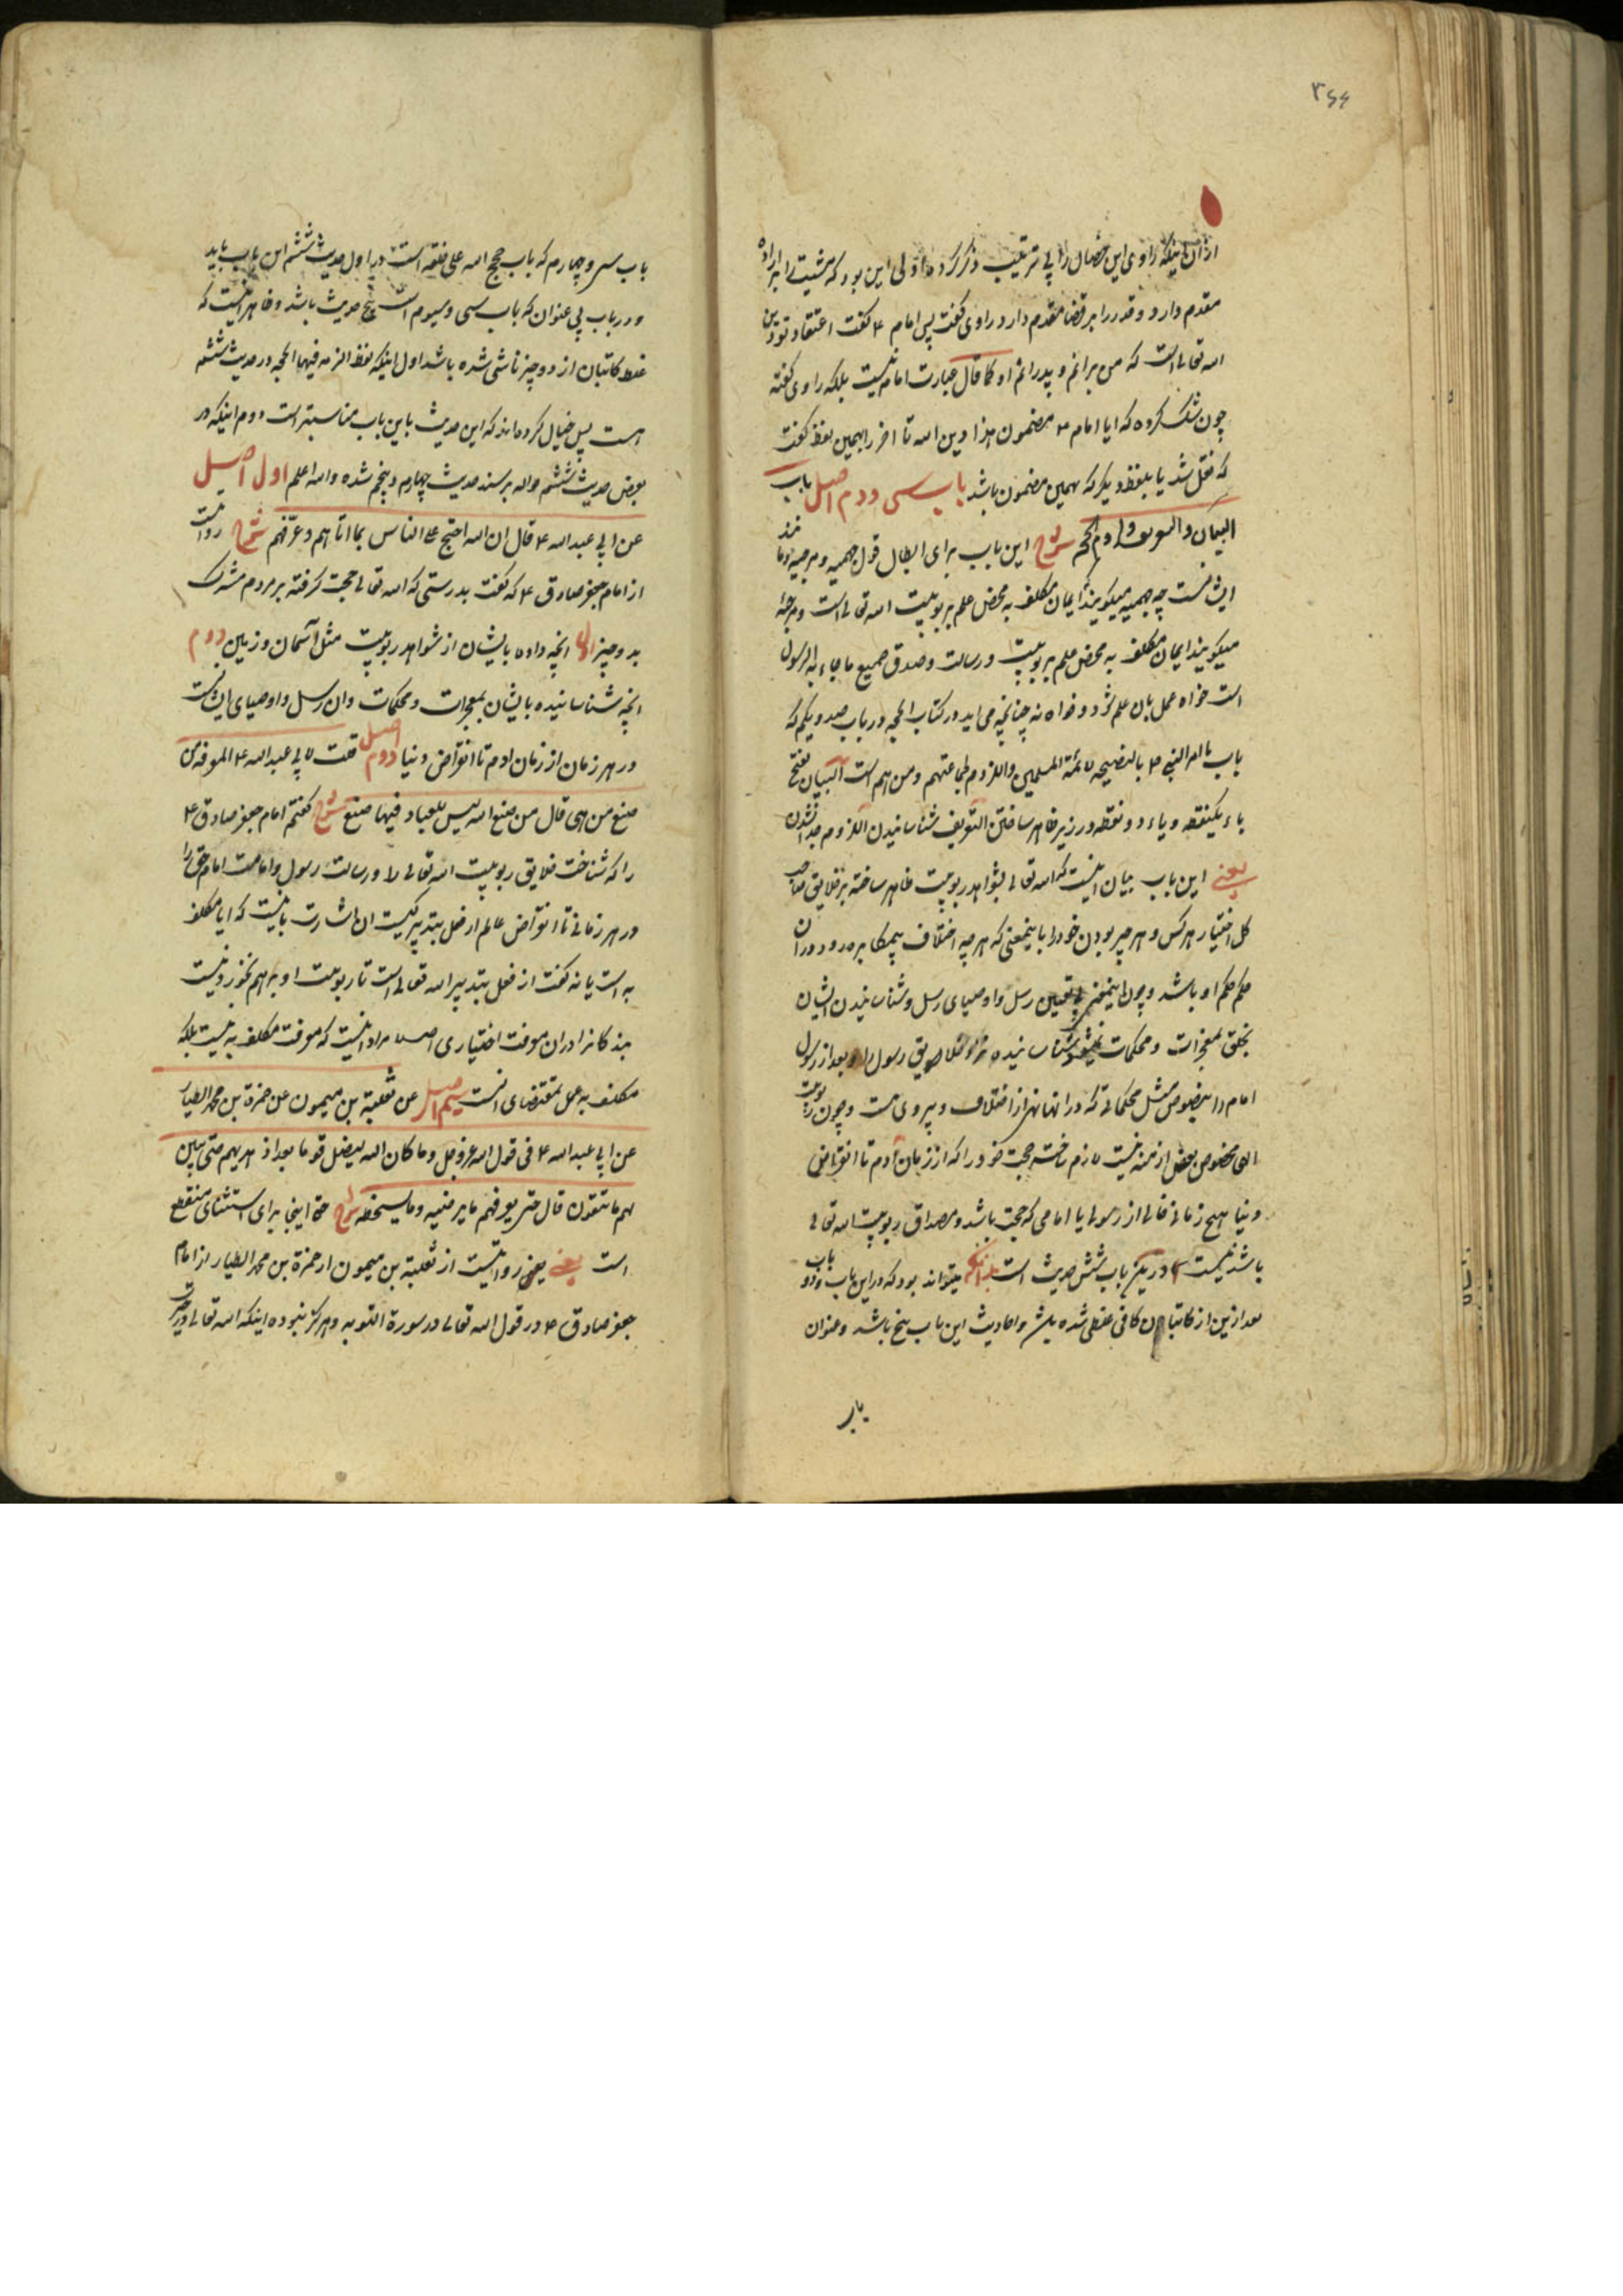 ۳۶۶
از آن اینکه راوی این خصال را بی ترتیب ذکر کرده اولی این بود که مشیت را بر اراده
مقدم دارد و قدر را بر قضا مقدم دارد راوی گفت پس امام ع گفت اعتقاد تو دین
الله تعالی است که من برانم و پدرانم او کما قال عبارت امام نیست بلکه راوی گفته
چون شک کرده که ایا امام ع مضمون هذا دین الله تا اخر را بهمین لفظ گفت
که نقل شد یا بلفظ دیگر که بهمین مضمون باشد باب سی و دوم اصل باب
البیان والتعریف ولزوم الحجه شرح این باب برای ابطال قول جهمیه و مرجیه
ایشانست چه جهمیه میگویند ایمان مکلف به محض علم بربوبیت الله تعالی است و مرجئه
میگویند ایمان مکلف به محض علم بربوبیت و رسالت و صدق جمیع ما جاء به الرسول
است خواه عمل بان علم شود و خواه نه چنانچه می اید در کتاب الحجه در باب صد و یکم که
باب ما امر النبی ص بالنصیحه لائمة المسلمین واللزوم لجماعتهم و من هم است البیان بفتح
باء یکنقطه و یاء دو نقطه در زیر ظاهر ساختن التعریف شناسانیدن اللزوم جدا نشدن
یعنی این باب بیان اینست که الله تعالی بشواهد ربوبیت ظاهر ساخته بر خلایق صاحب
کل اختیار هر کس و هر چیز بودن خود را باینمعنی که هر چه اختلاف بیمکابره رود در ان
حکم حکم او باشد و چون اینمعنی بی تعیین رسل و اوصیای رسل و شناسانیدن ایشان
بخلق بمعجزات و محکمات نمیشود شناسانیده خلایق رسول را و بعد از رسول
امام را بنصوص مثل محکماتی که در انها نهی از اختلاف و پیروی ظن است و چون ربوبیت
الهی مخصوص بعض ازمنه نیست لازم ساخته حجت خود را که از زمان آدم تا انقراض
دنیا هیچ زمانی خالی از رسولی یا امامی که حجت باشد و مصداق ربوبیت الله تعالی
باشد نیست در این باب شش حدیث است بدانکه میتواند بود که در این باب و دو باب
بعد ازین از کاتبان کافی غلطی شده باشد و احادیث این باب پنج باشد و عنوان
باب
باب سی و چهارم که باب حجج الله علی خلقه است در اول حدیث ششم این باب باید
و در باب بی عنوان که باب سی و سیوم است پنج حدیث باشد و ظاهر اینست که
غلط کاتبان از دو چیز ناشی شده باشد اول اینکه لفظ الزمه فیها الحجه در حدیث ششم
هست پس خیال کرده اند که این حدیث باین باب مناسبتر است دوم اینکه در
بعض حدیث ششم حواله بر سند حدیث چهارم و پنجم شده والله اعلم اول اصل
عن ابی عبدالله ع قال ان الله احتج علی الناس بما اتاهم و عرفهم شرح روایتست
از امام جعفر صادق ع که گفت بدرستی که الله تعالی حجت گرفته بر مردم مشرک
بدو چیز اول انچه داده بایشان از شواهد ربوبیت مثل آسمان و زمین دوم
انچه شناسانیده بایشان بمعجزات و محکمات و ان رسل و اوصیای ایشانست
در هر زمان از زمان ادم تا انقراض دنیا دوم اصل قلت لابی عبدالله ع المعرفه من
صنع من هی قال من صنع الله لیس للعباد فیها صنع شرح گفتم امام جعفر صادق ع
را که شناخت خلایق ربوبیت الله تعالی را و رسالت رسول و امامت امام حق را
در هر زمانی تا انقراض عالم از فعل بتدبیر کیست ان اشارت باینست که ایا مکلف
به است یا نه گفت از فعل بتدبیر الله تعالی است تا ربوبیت او بر هم نخورد و نیست
بندکانرا در ان معرفت اختیاری اصلا مراد اینست که معرفت مکلف به نیست بلکه
مکلف به عمل بمقتضای انست سیم اصل عن ثعلبة بن میمون عن حمزة بن محمد الطیار
عن ابی عبدالله ع فی قول الله عزوجل و ما کان الله لیضل قوما بعد اذ هدیهم حتی یبین
لهم ما یتقون قال حتی یعرفهم ما یرضیه و ما یسخطه شرح حتی اینجا برای استثنای منقطع
است یعنی یعنی روایتست از ثعلبة بن میمون از حمزة بن محمد الطیار از امام
جعفر صادق ع در قول الله تعالی در سورة التوبه و هرگز نبوده اینکه الله تعالی در